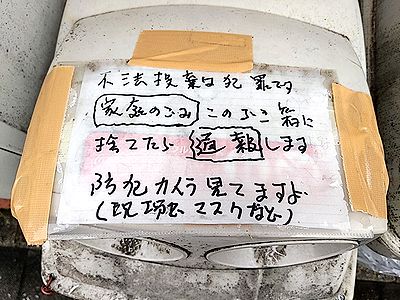 不法投棄は犯罪です
家庭のごみ このゴミ箱に
捨てたら 通報します
防犯カメラ見てますよ
(現場 マスクなし)